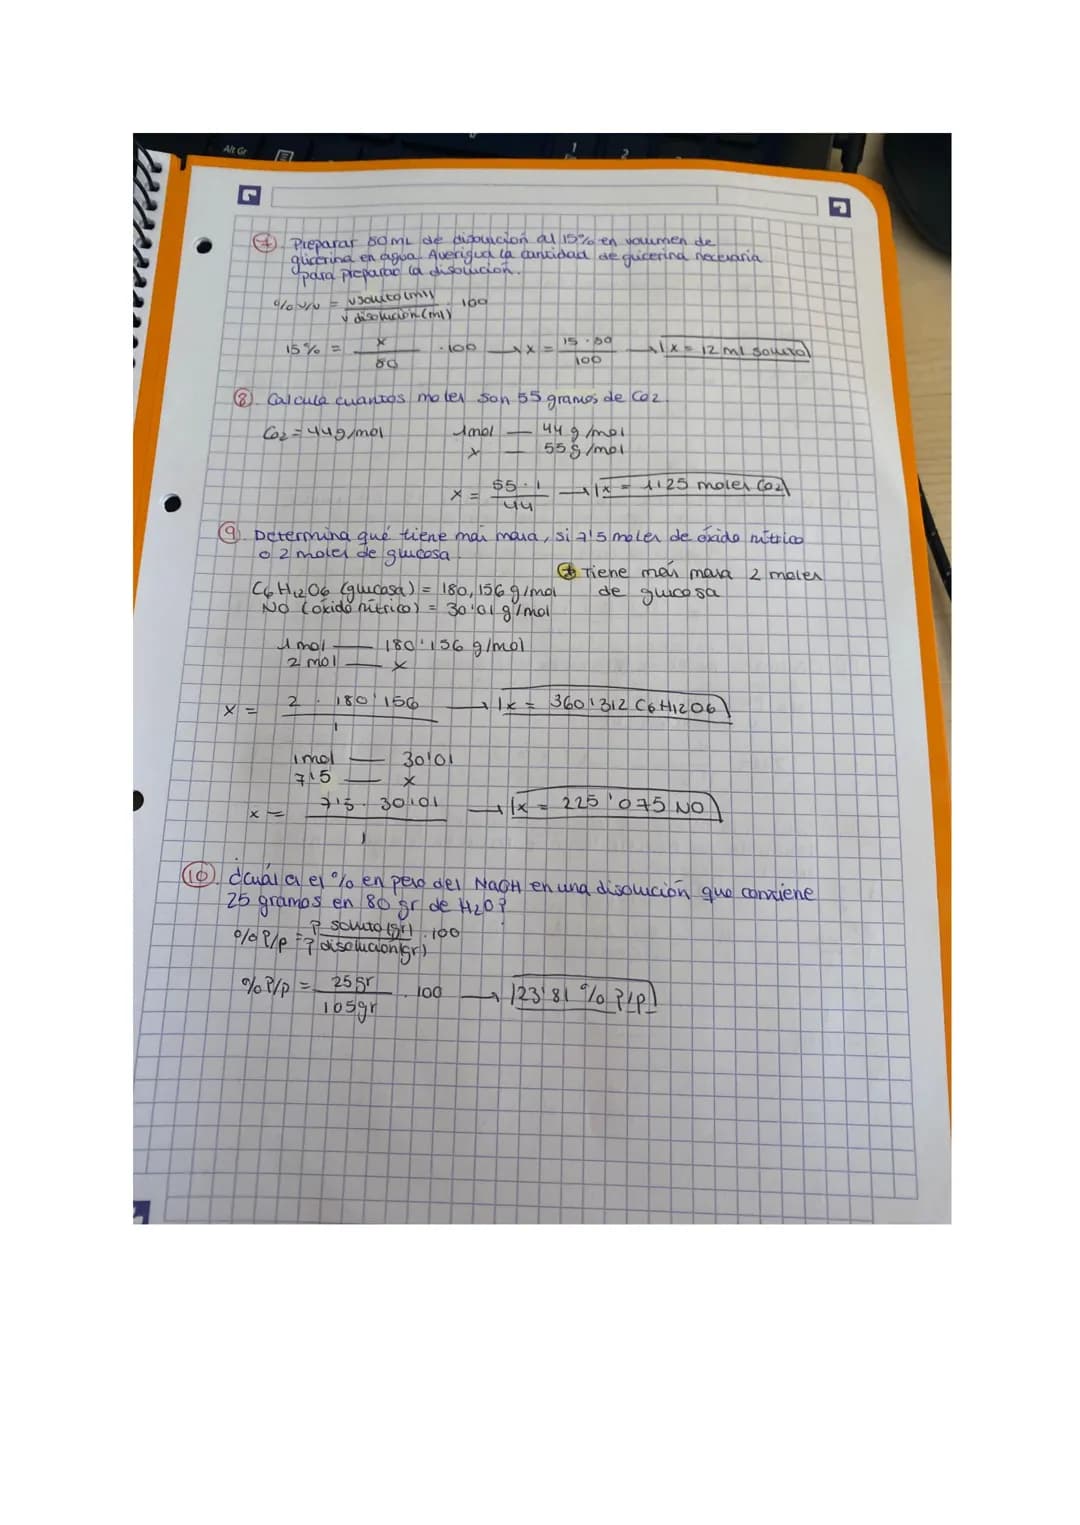 Alt Gr
7. Preparar 80 mL de disolución al 15% en volumen de
glicerina en agua. Averigua la cantidad de glicerina necesaria
para preparar la disolución.
% v/v = v soluto (ml) / v disolución (ml) · 100
15% = x / 80 · 100 → x = 15 · 80 / 100 → x = 12 ml soluto
8. Calcula cuantos moles son 55 gramos de CO2.
CO2 = 44g/mol 1mol — 44 g/mol
x — 55g/mol
x = 55 · 1 / 44 → x = 1'25 moles CO2
9. Determina qué tiene más masa, si 7'5 moles de óxido nítrico
o 2 moles de glucosa.
* Tiene más masa 2 moles
de glucosa
C6H12O6 (glucosa) = 180,156 g/mol
NO (óxido nítrico) = 30'01 g/mol
1 mol — 180'156 g/mol
2 mol — x
x = 2 · 180'156 / 1 → x = 360'312 C6H12O6
1mol — 30'01
7'5 — x
x = 7'5 · 30'01 / 1 → x = 225'075 NO
10. ¿Cuál es el % en peso del NaOH en una disolución que contiene
25 gramos en 80 gr de H2O?
% P/P = P soluto (gr) / P disolución (gr) · 100
% P/P = 25gr / 105gr · 100 → 23'81 % P/P